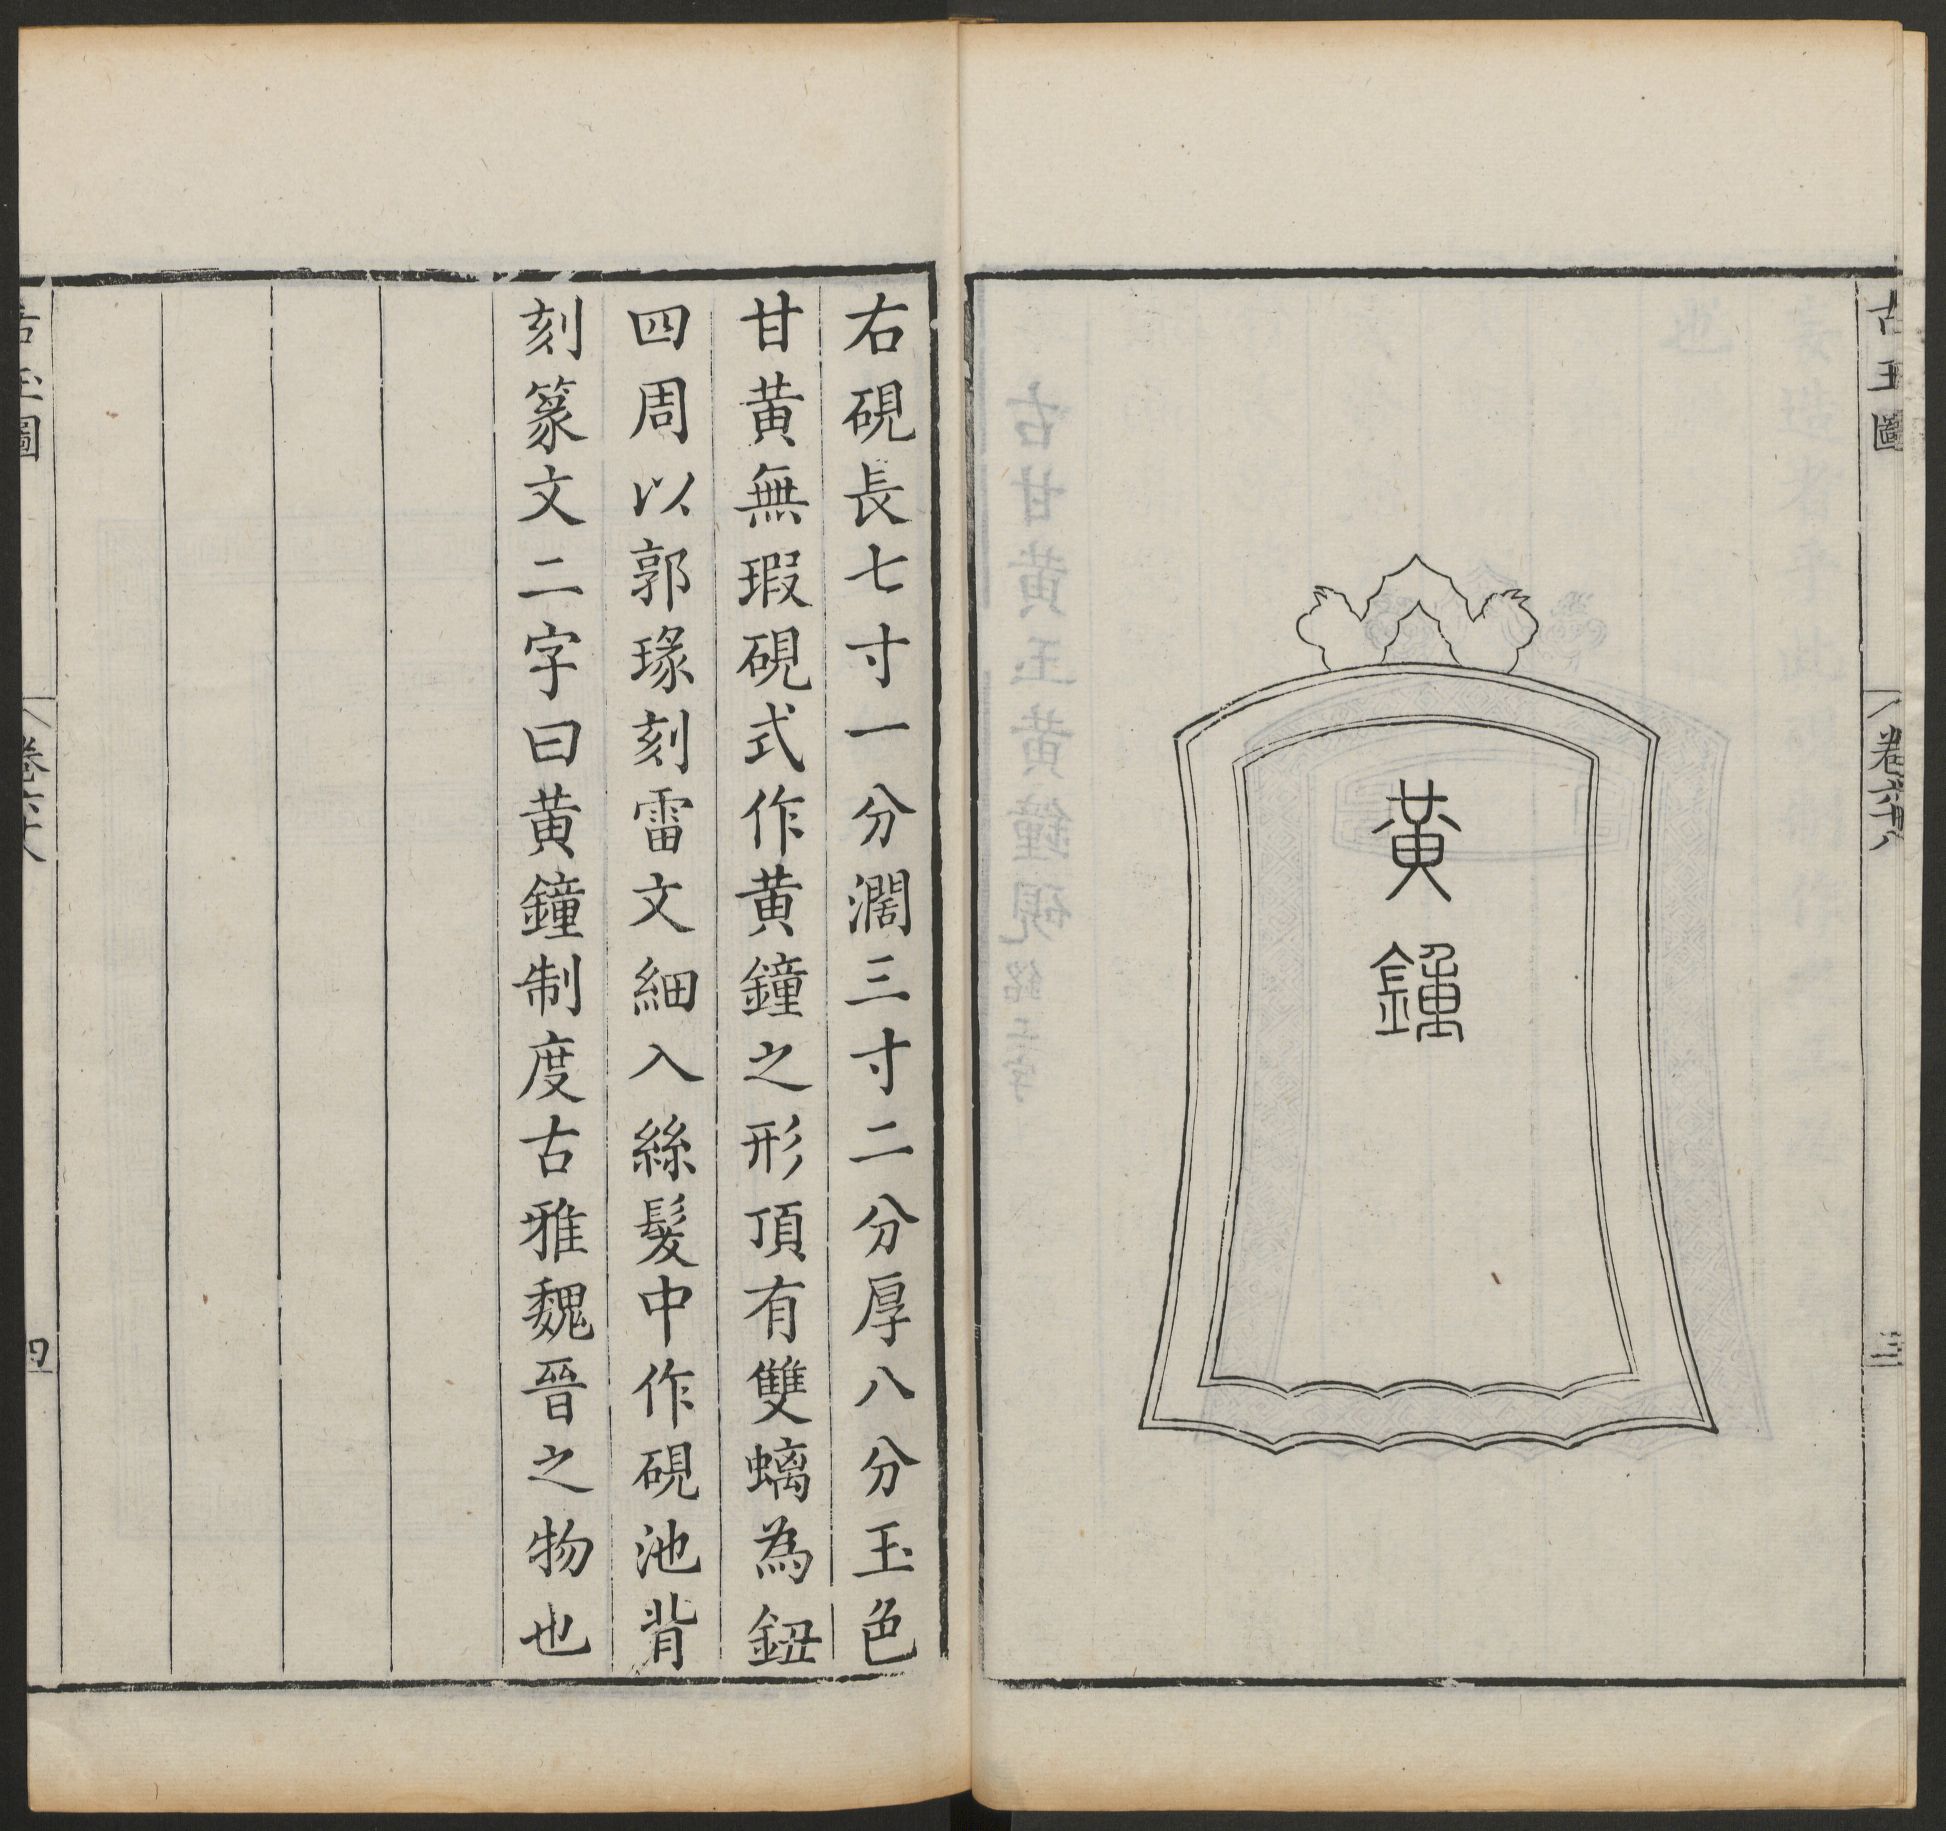 古玉圖
三
黃鍾
右硯長七寸一分濶三寸二分厚八分玉色
甘黃無瑕硯式作黃鐘之形頂有雙螭為鈕
四周以郭瑑刻雷文細入絲髮中作硯池背
刻篆文二字曰黃鐘制度古雅魏晉之物也
古玉圖
四